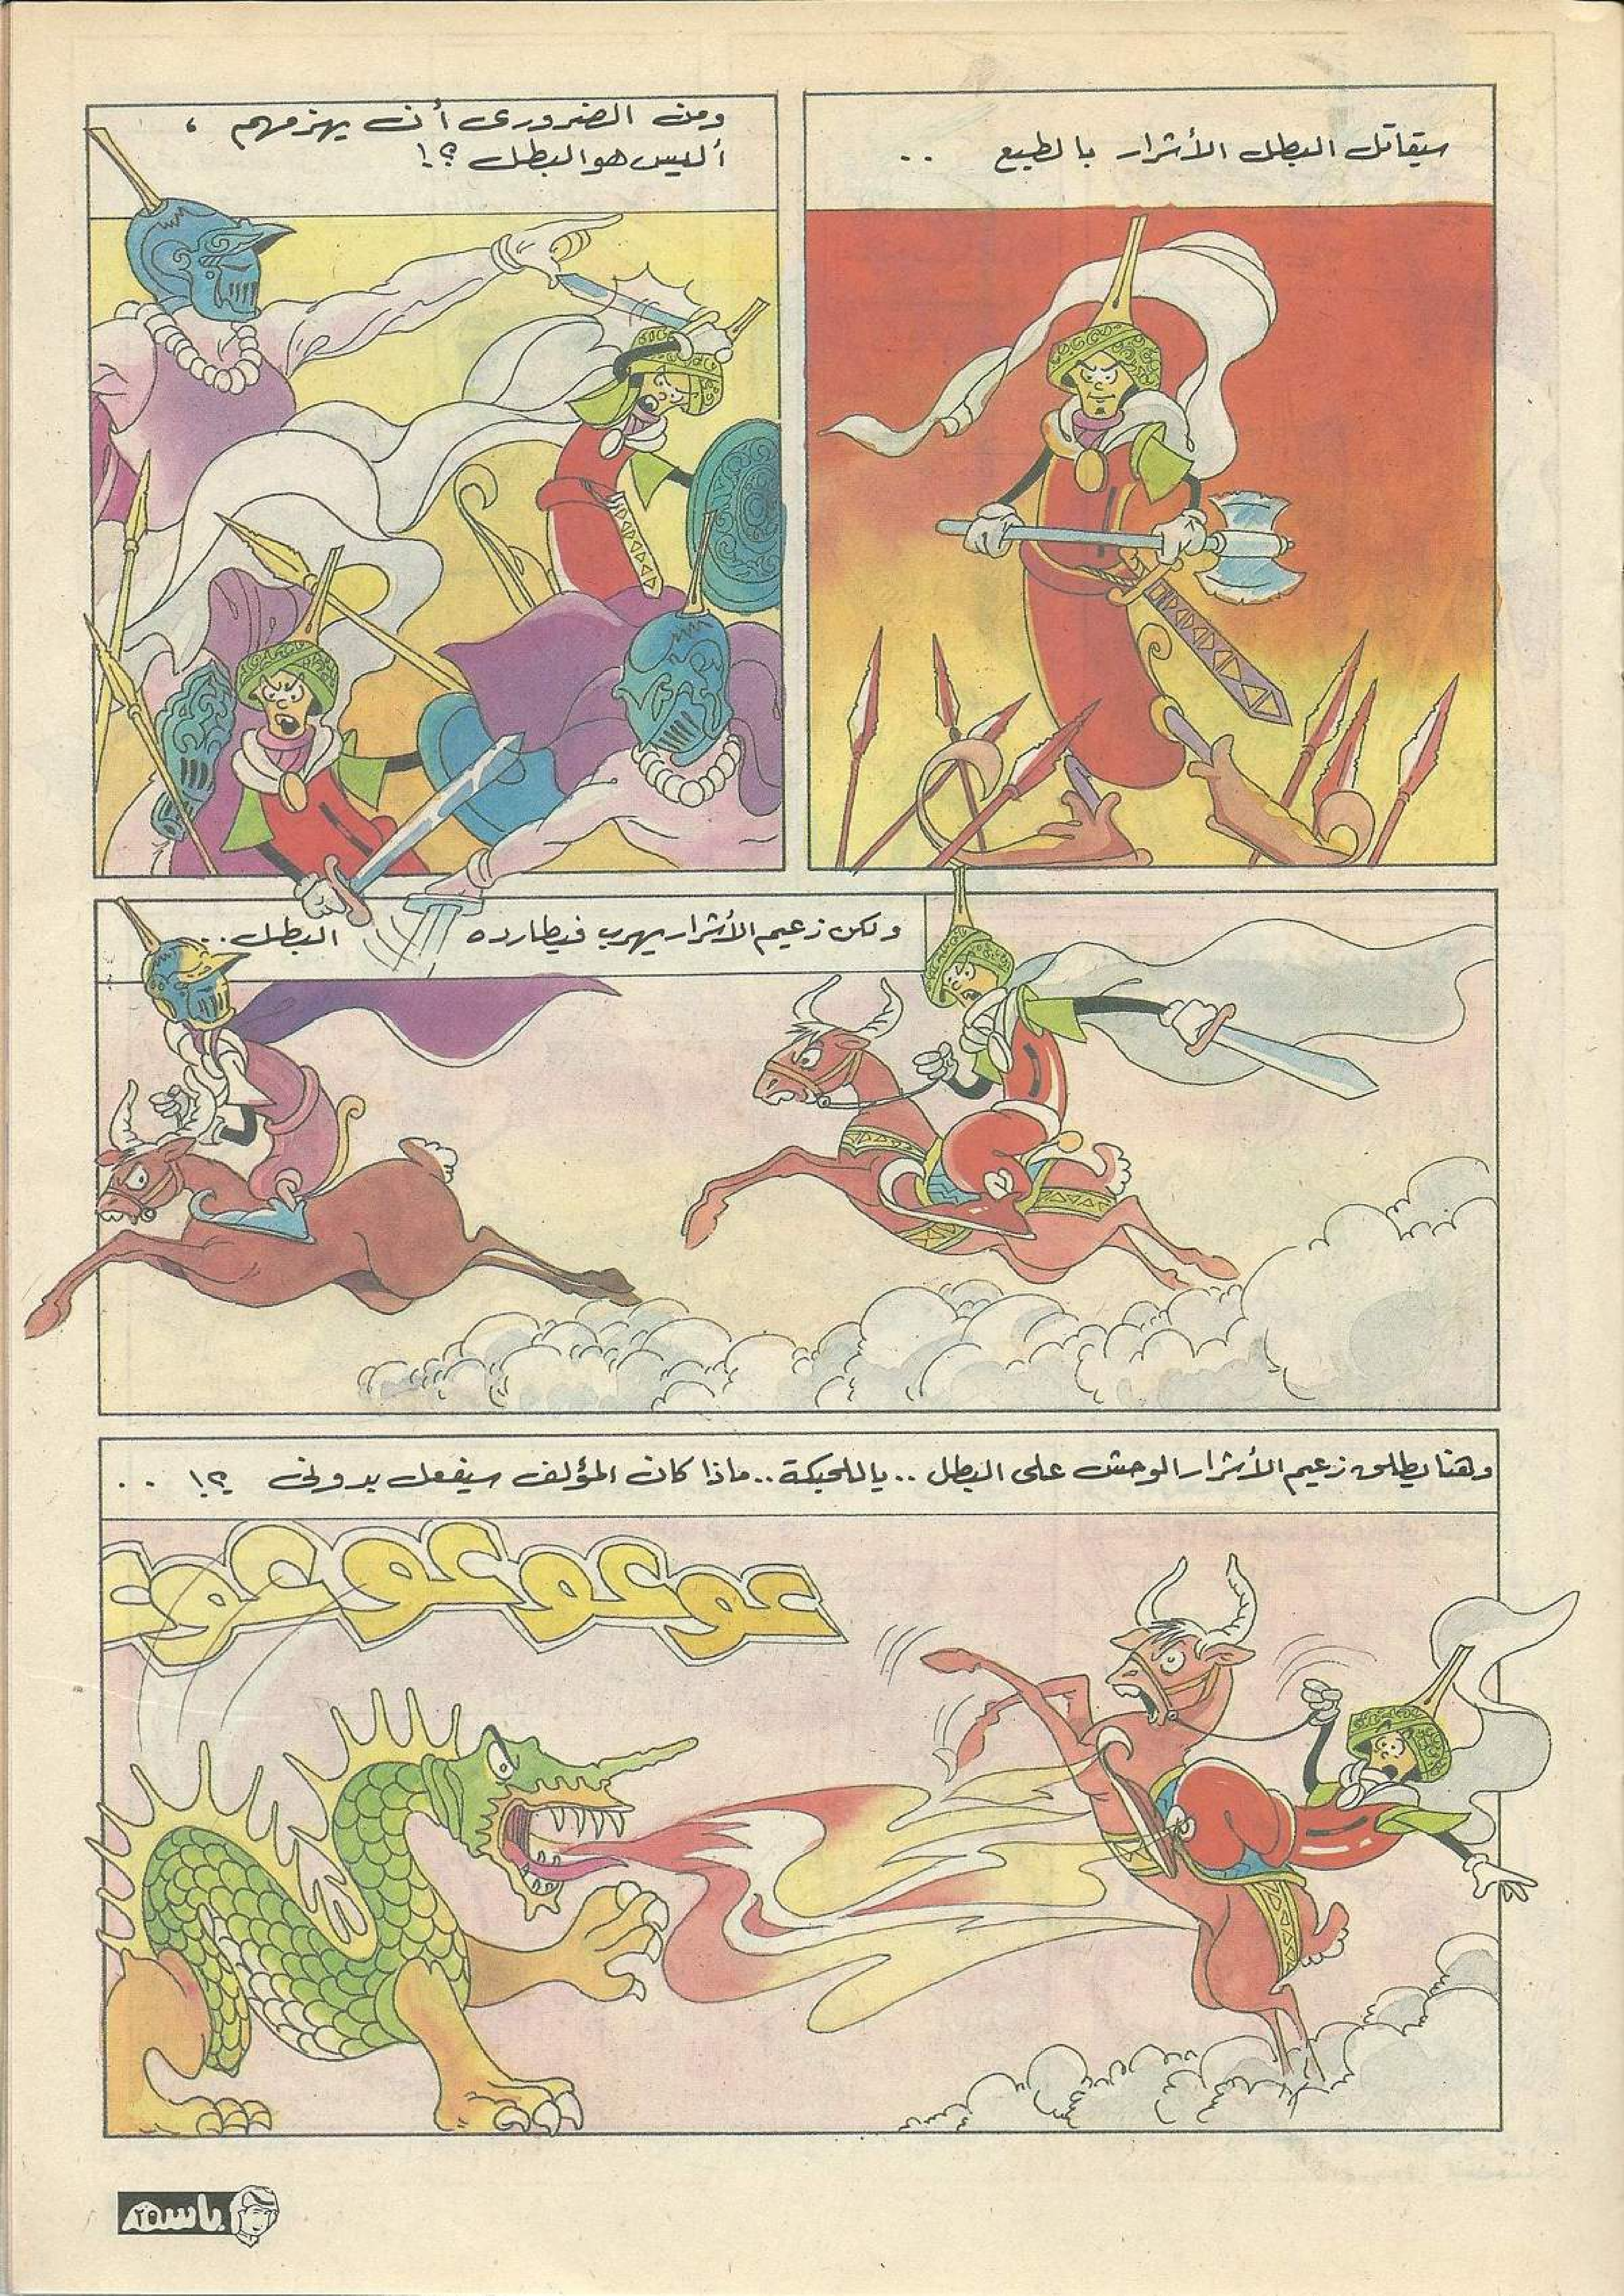 سيقاتل البطل الأشرار بالطبع ..
ومن الضرورى أن يهزمهم ،
أليس هو البطل ؟!
ولكن زعيم الأشرار يهرب فيطارده البطل ..
وهنا يطلق زعيم الأشرار الوحش على البطل .. يا للحبكة .. ماذا كان المؤلف سيفعل بدونى ؟! ..
عوعوعوعوعوع
باسم